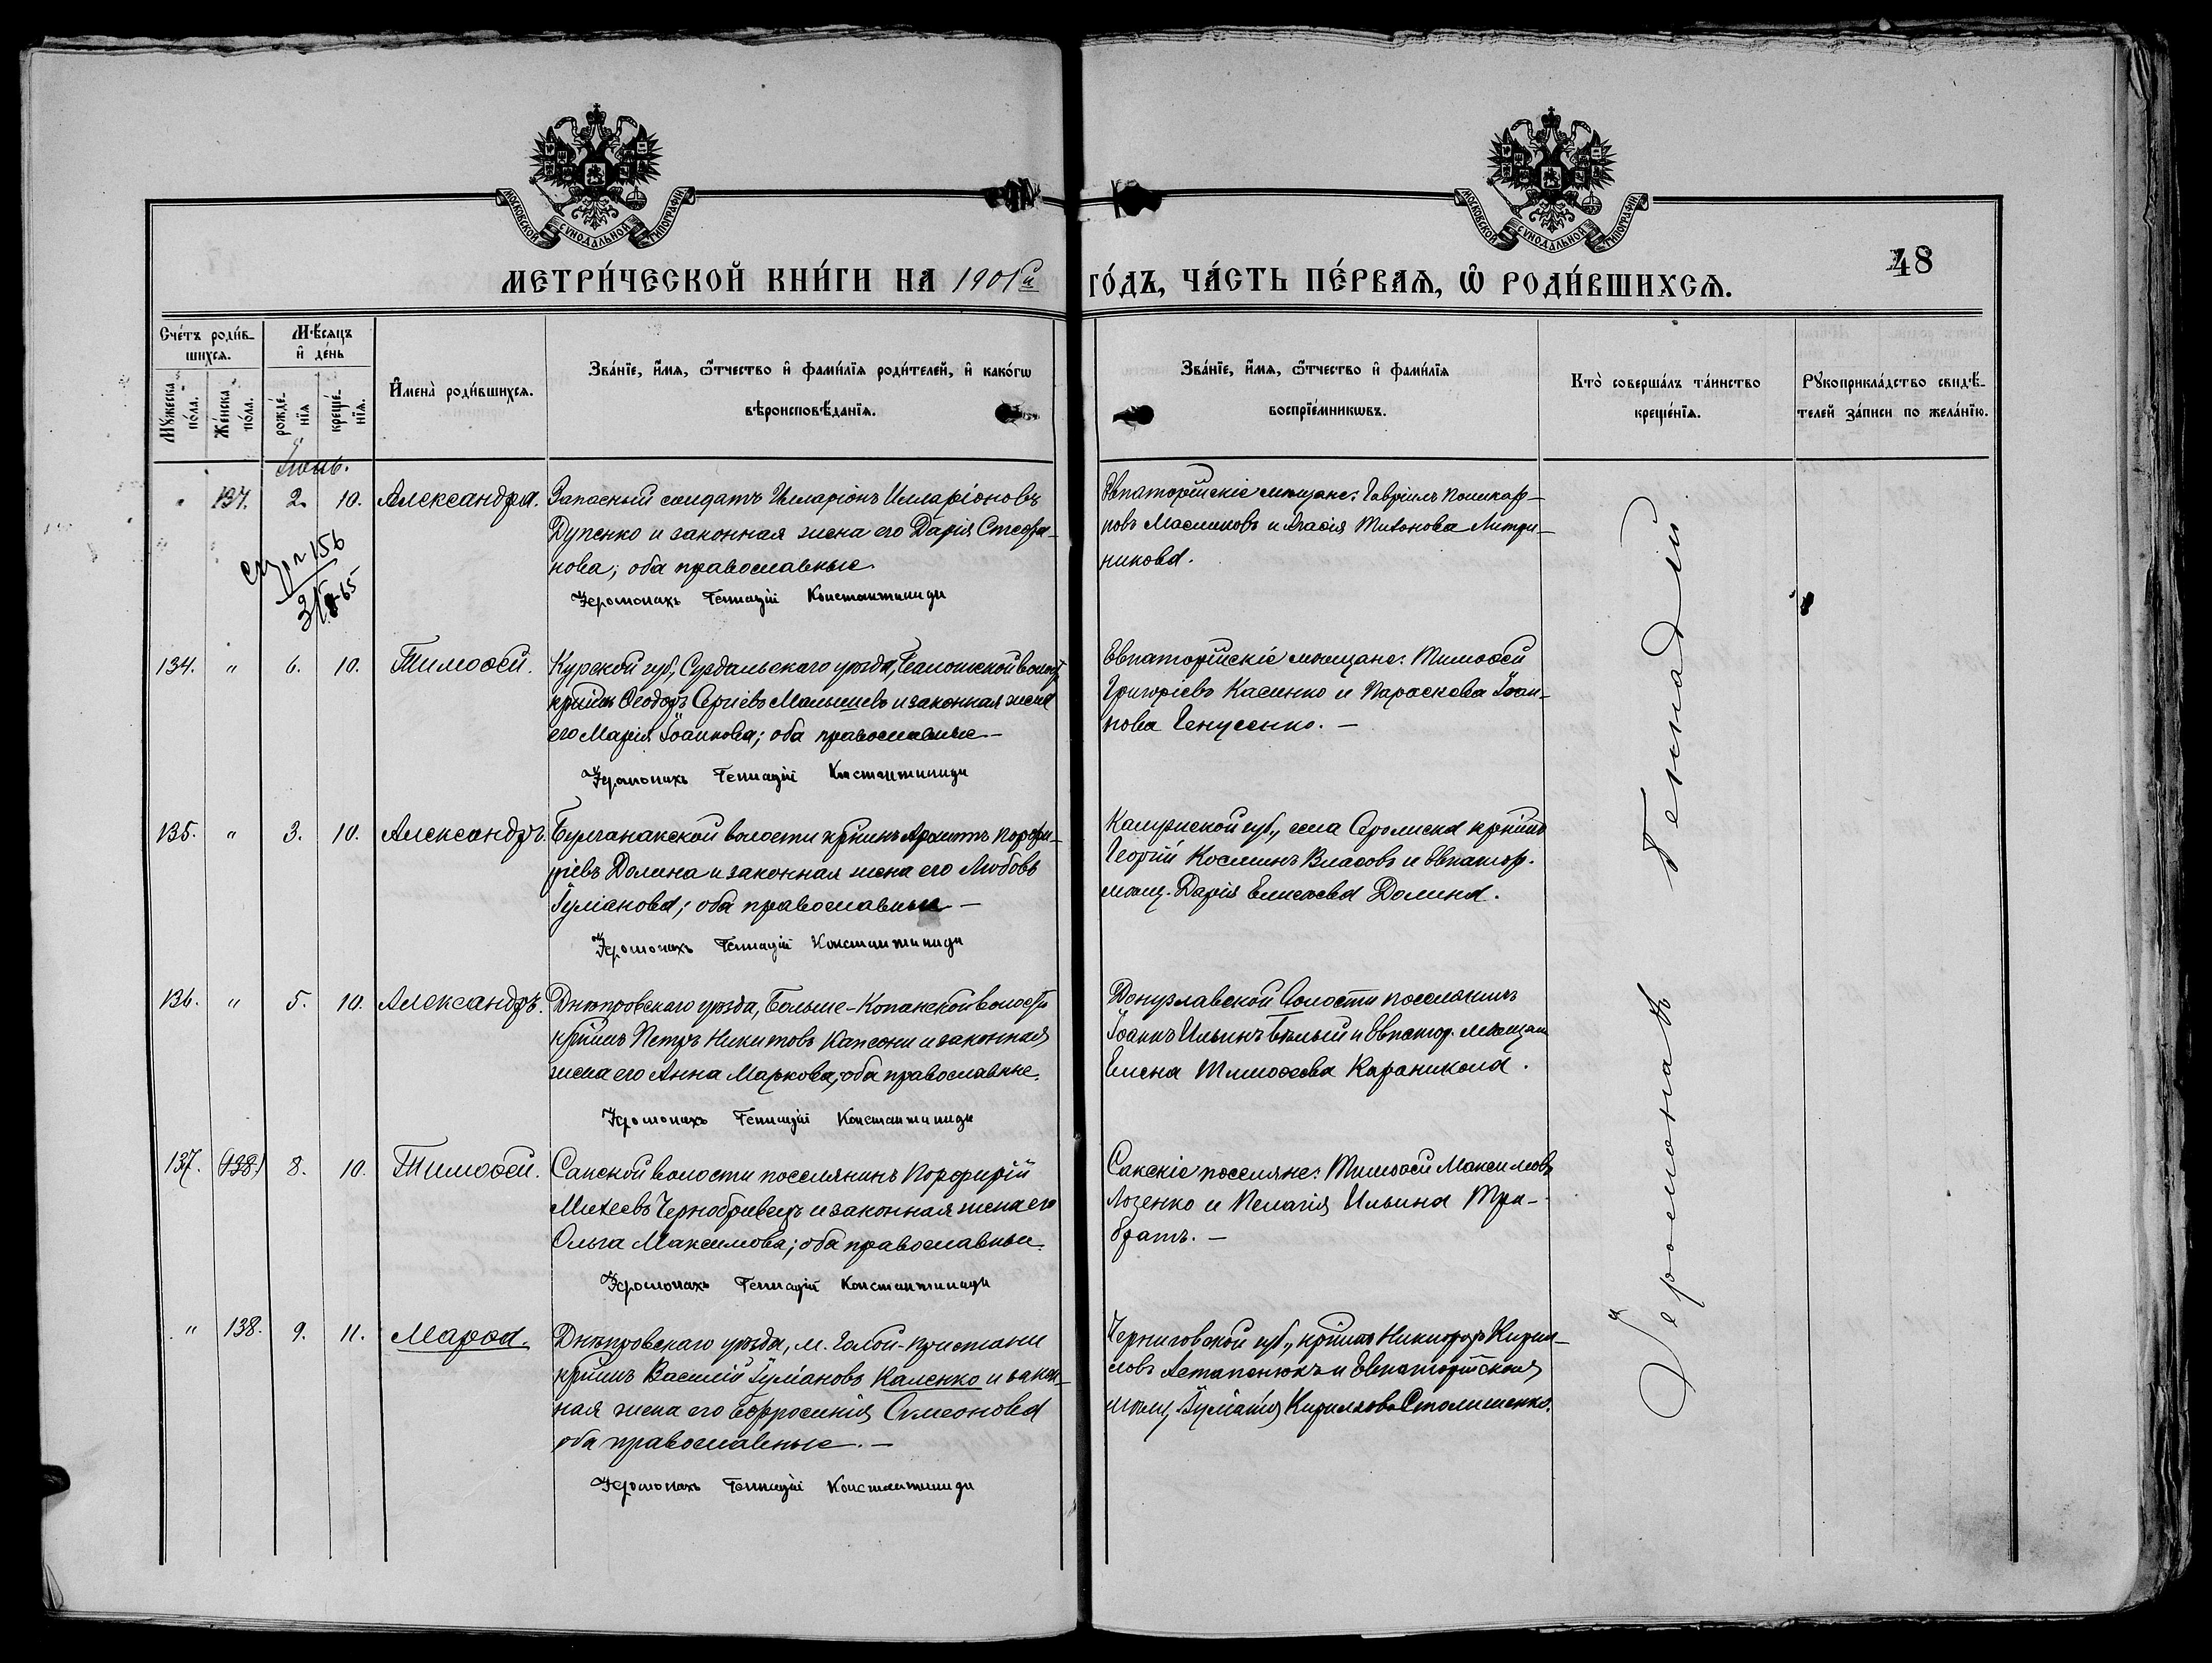 МОСКОВСКОЙ СУНОДАЛЬНОЙ ТИПОГРАФІИ
МОСКОВСКОЙ СУНОДАЛЬНОЙ ТИПОГРАФІИ
48
МЕТРИ́ЧЕСКОЙ КНИ́ГИ НА 1901й ГО́ДЪ, ЧА́СТЬ ПЕ́РВАѦ, Ѡ҆ РОДИ́ВШИХСѦ.
Сче́тъ роди́в-
шихсѧ.
Мꙋ́жеска по́ла.
Же́нска по́ла.
Мѣ́сѧцъ
и҆ де́нь
рожде́-
нїѧ
креще́-
нїѧ.
И҆мена̀ роди́вшихсѧ.
Зва́нїе, и҆́мѧ, ѻ҆́тчество и҆ фами́лїѧ роди́телей, и҆ како́гѡ
вѣроисповѣ́данїѧ.
Зва́нїе, и҆́мѧ, ѻ҆́тчество и҆ фами́лїѧ
воспрїе́мникѡвъ.
Кто̀ соверша́лъ та́инство
креще́нїѧ.
Рꙋкоприкла́дство свидѣ́-
телей за́писи по жела́нїю.
Іюнь.
137. 2. 10. Александра. Запасный солдатъ Илларіонъ Илларіоновъ
Дупенко и законная жена его Дарія Стефа-
нова; оба православные.
Іеромонахъ Геннадій Константиниди
Евпаторійскіе мѣщане: Гавріилъ Поликар-
повъ Маслиновъ и Агафія Тихонова
никова.
№ 156
65
134. " 6. 10. Тимоѳей. Курской губ., Суздальскаго уѣзда, волости
крінъ Ѳеодоръ Сергіевъ Малышевъ и законная жена
его Марія Іоаннова; оба православные —
Іеромонахъ Геннадій Константиниди
Евпаторійскіе мѣщане: Тимоѳей
Григоріевъ Касенко и Параскева Іоан-
нова —
135. " 3. 10. Александръ. Булганакской волости крінъ Порфи-
ріевъ Долина и законная жена его Любовь
Іуліанова; оба православные —
Іеромонахъ Геннадій Константиниди
Калужской губ., села крінъ
Георгій Косминъ Власовъ и Евпатор.
мѣщ. Дарія Елисеева Долина.
136. " 5. 10. Александръ. Днѣпровскаго уѣзда, Больше-Копанской волости
крінъ Петръ Никитовъ Капсони и законная
жена его Анна Маркова, оба православные.
Іеромонахъ Геннадій Константиниди
Донузлавской волости поселянинъ
Іоаннъ Ильинъ Бѣлый и Евпатор. мѣщан.
Елена Тимоѳеева Караникола.
137. (138.) 8. 10. Тимоѳей. Сакской волости поселянинъ Порфирій
Михеевъ Чернобривецъ и законная жена его
Ольга Максимова; оба православные.
Іеромонахъ Геннадій Константиниди
Сакскіе поселяне: Тимоѳей Максимовъ
Лозенко и Пелагія Ильина Тра-
братъ. —
" 138. 9. 11. Марѳа. Днѣпровскаго уѣзда, м. Голой-Пристани
крінъ Василій Іуліановъ Каленко и закон-
ная жена его Евфросинія Симеонова
оба православные. —
Іеромонахъ Геннадій Константиниди
Черниговской губ., крінъ Никифоръ Кирил-
ловъ Астапенюкъ и Евпаторійская
мѣщ. Іуліанія Кириллова Столишенко.
Іеромонахъ Геннадій